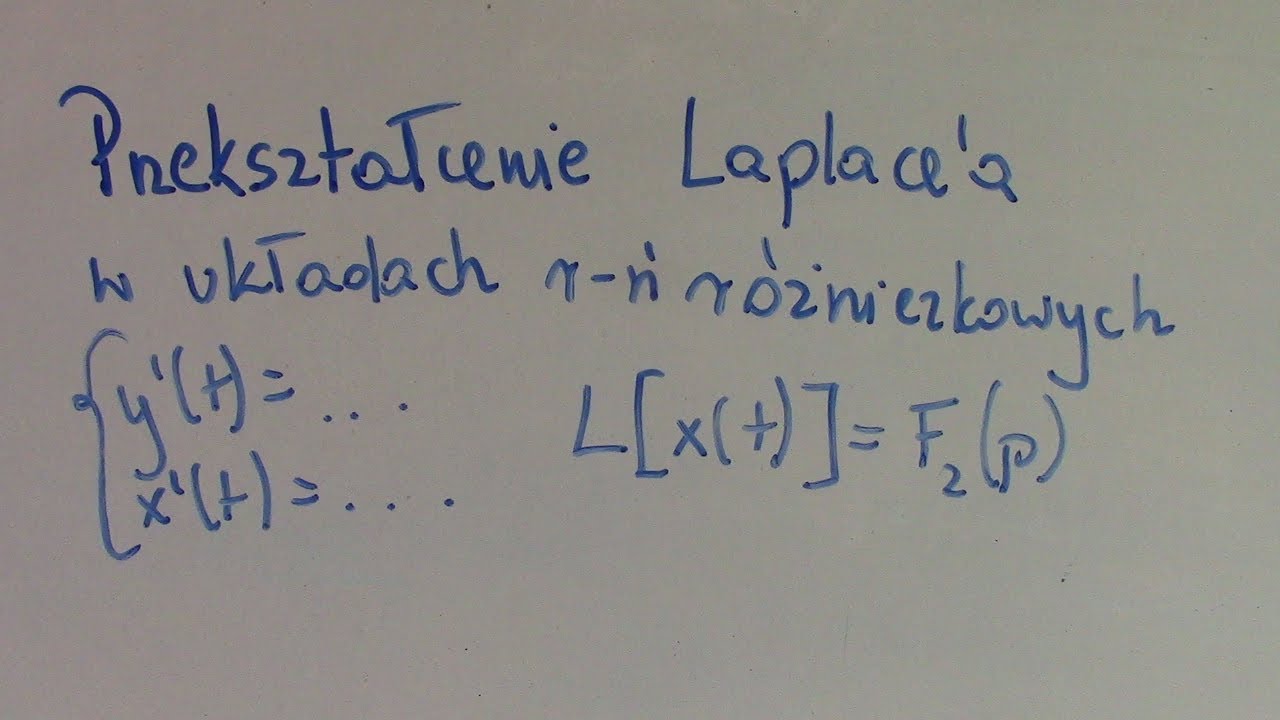 Przekształcenie Laplace'a
w układach r-ń różniczkowych
{ y'(t) = ...
x'(t) = ....
L[x(t)] = F₂(p)